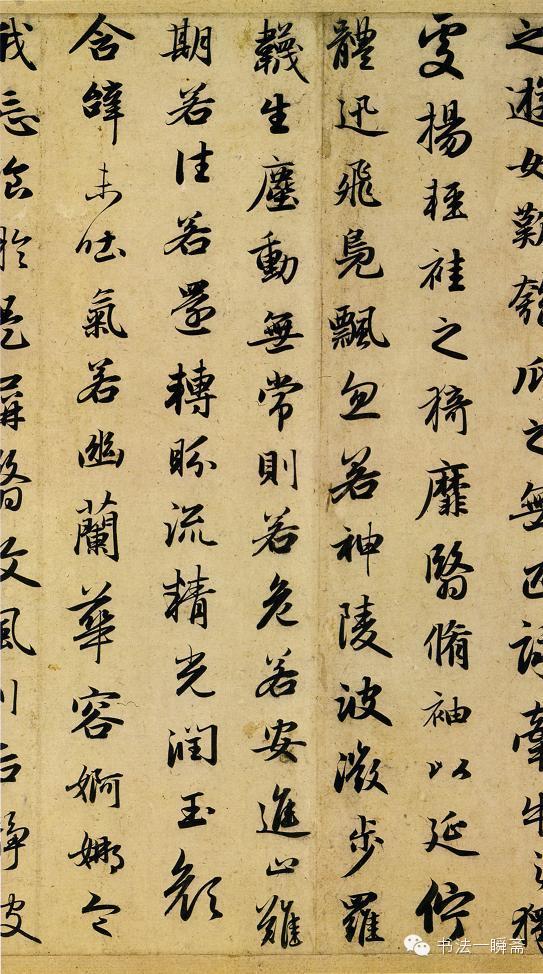 之遊女歎匏瓜之無匹詠牽牛之獨
處揚輕袿之猗靡翳脩袖以延佇
體迅飛鳧飄忽若神陵波微步羅
韈生塵動無常則若危若安進止難
期若往若還轉眄流精光潤玉顏
含辭未吐氣若幽蘭華容婀娜令
我忘食於是屏翳收風川后靜波
书法一瞬斋